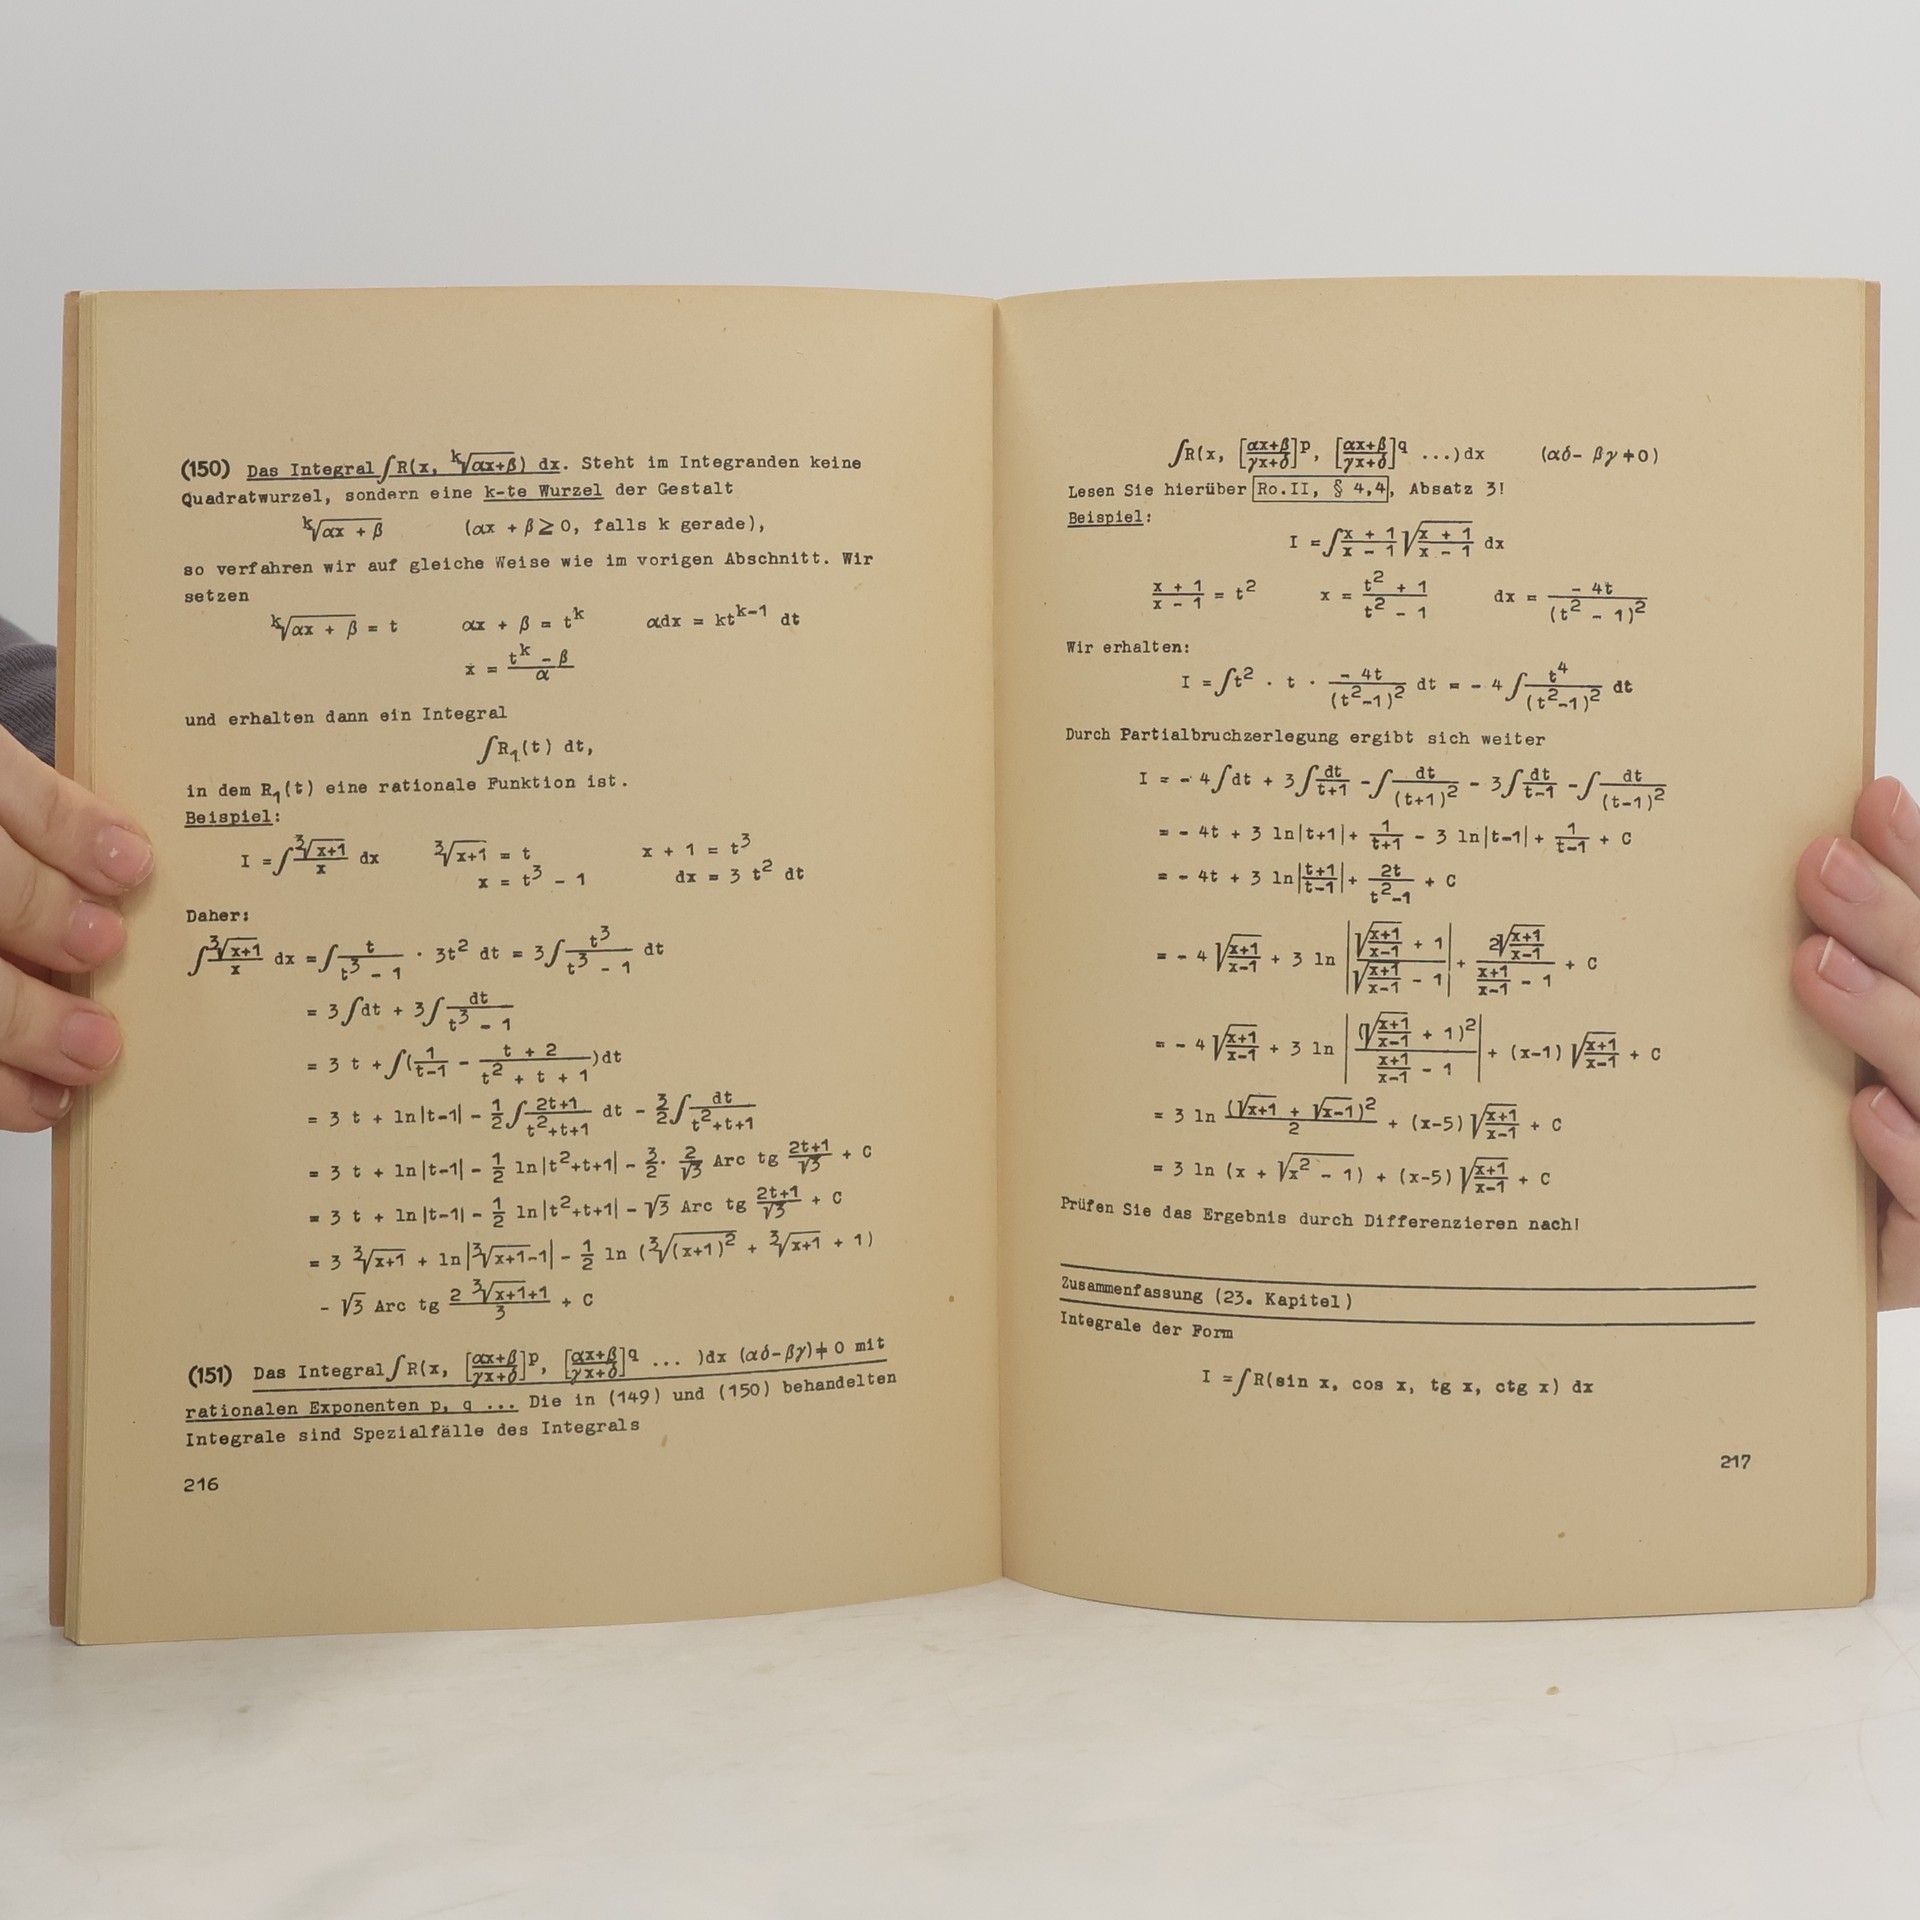 (150) Das Integral ∫R(x, ᵏ√(αx+β)) dx. Steht im Integranden keine
Quadratwurzel, sondern eine k-te Wurzel der Gestalt
ᵏ√(αx + β) (αx + β ≥ 0, falls k gerade),
so verfahren wir auf gleiche Weise wie im vorigen Abschnitt. Wir
setzen
ᵏ√(αx + β) = t αx + β = t^k αdx = kt^(k-1) dt
x = (t^k - β)/α
und erhalten dann ein Integral
∫R₁(t) dt,
in dem R₁(t) eine rationale Funktion ist.
Beispiel:
I = ∫ ³√(x+1)/x dx ³√(x+1) = t x + 1 = t³
x = t³ - 1 dx = 3 t² dt
Daher:
∫ ³√(x+1)/x dx = ∫ t/(t³ - 1) · 3t² dt = 3∫ t³/(t³ - 1) dt
= 3∫dt + 3∫ dt/(t³ - 1)
= 3 t + ∫(1/(t-1) - (t + 2)/(t² + t + 1))dt
= 3 t + ln|t-1| - 1/2 ∫ (2t+1)/(t²+t+1) dt - 3/2 ∫ dt/(t²+t+1)
= 3 t + ln|t-1| - 1/2 ln|t²+t+1| - 3/2 · 2/√3 Arc tg (2t+1)/√3 + C
= 3 t + ln|t-1| - 1/2 ln|t²+t+1| - √3 Arc tg (2t+1)/√3 + C
= 3 ³√(x+1) + ln|³√(x+1)-1| - 1/2 ln (³√((x+1)²) + ³√(x+1) + 1)
- √3 Arc tg (2 ³√(x+1)+1)/3 + C
(151) Das Integral ∫R(x, [(αx+β)/(γx+δ)]^p, [(αx+β)/(γx+δ)]^q ... )dx (αδ-βγ)≠0 mit
rationalen Exponenten p, q ... Die in (149) und (150) behandelten
Integrale sind Spezialfälle des Integrals
216
∫R(x, [(αx+β)/(γx+δ)]^p, [(αx+β)/(γx+δ)]^q ...)dx (αδ- βγ≠0)
Lesen Sie hierüber Ro.II, § 4,4, Absatz 3!
Beispiel:
I = ∫ (x + 1)/(x - 1) √((x + 1)/(x - 1)) dx
(x + 1)/(x - 1) = t² x = (t² + 1)/(t² - 1) dx = - 4t/(t² - 1)²
Wir erhalten:
I = ∫t² · t · - 4t/(t²-1)² dt = - 4∫ t⁴/(t²-1)² dt
Durch Partialbruchzerlegung ergibt sich weiter
I = - 4∫dt + 3∫ dt/(t+1) - ∫ dt/(t+1)² - 3∫ dt/(t-1) - ∫ dt/(t-1)²
= - 4t + 3 ln|t+1| + 1/(t+1) - 3 ln|t-1| + 1/(t-1) + C
= - 4t + 3 ln|(t+1)/(t-1)| + 2t/(t²-1) + C
= - 4 √((x+1)/(x-1)) + 3 ln |(√((x+1)/(x-1)) + 1)/(√((x+1)/(x-1)) - 1)| + 2√((x+1)/(x-1))/((x+1)/(x-1) - 1) + C
= - 4 √((x+1)/(x-1)) + 3 ln |(√((x+1)/(x-1)) + 1)²/((x+1)/(x-1) - 1)| + (x-1) √((x+1)/(x-1)) + C
= 3 ln (√(x+1) + √(x-1))²/2 + (x-5) √((x+1)/(x-1)) + C
= 3 ln (x + √(x² - 1)) + (x-5) √((x+1)/(x-1)) + C
Prüfen Sie das Ergebnis durch Differenzieren nach!
Zusammenfassung (23. Kapitel)
Integrale der Form
I = ∫R(sin x, cos x, tg x, ctg x) dx
217